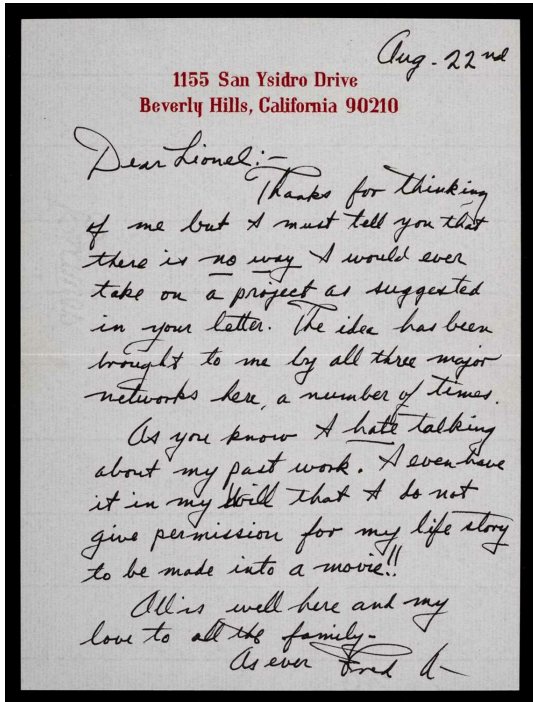 Aug - 22nd
1155 San Ysidro Drive
Beverly Hills, California 90210
Dear Lionel:-
Thanks for thinking
of me but I must tell you that
there is no way I would ever
take on a project as suggested
in your letter. The idea has been
brought to me by all three major
networks here, a number of times.
As you know I hate talking
about my past work. I even have
it in my Will that I do not
give permission for my life story
to be made into a movie!!
All is well here and my
love to all the family -
As ever Fred A-